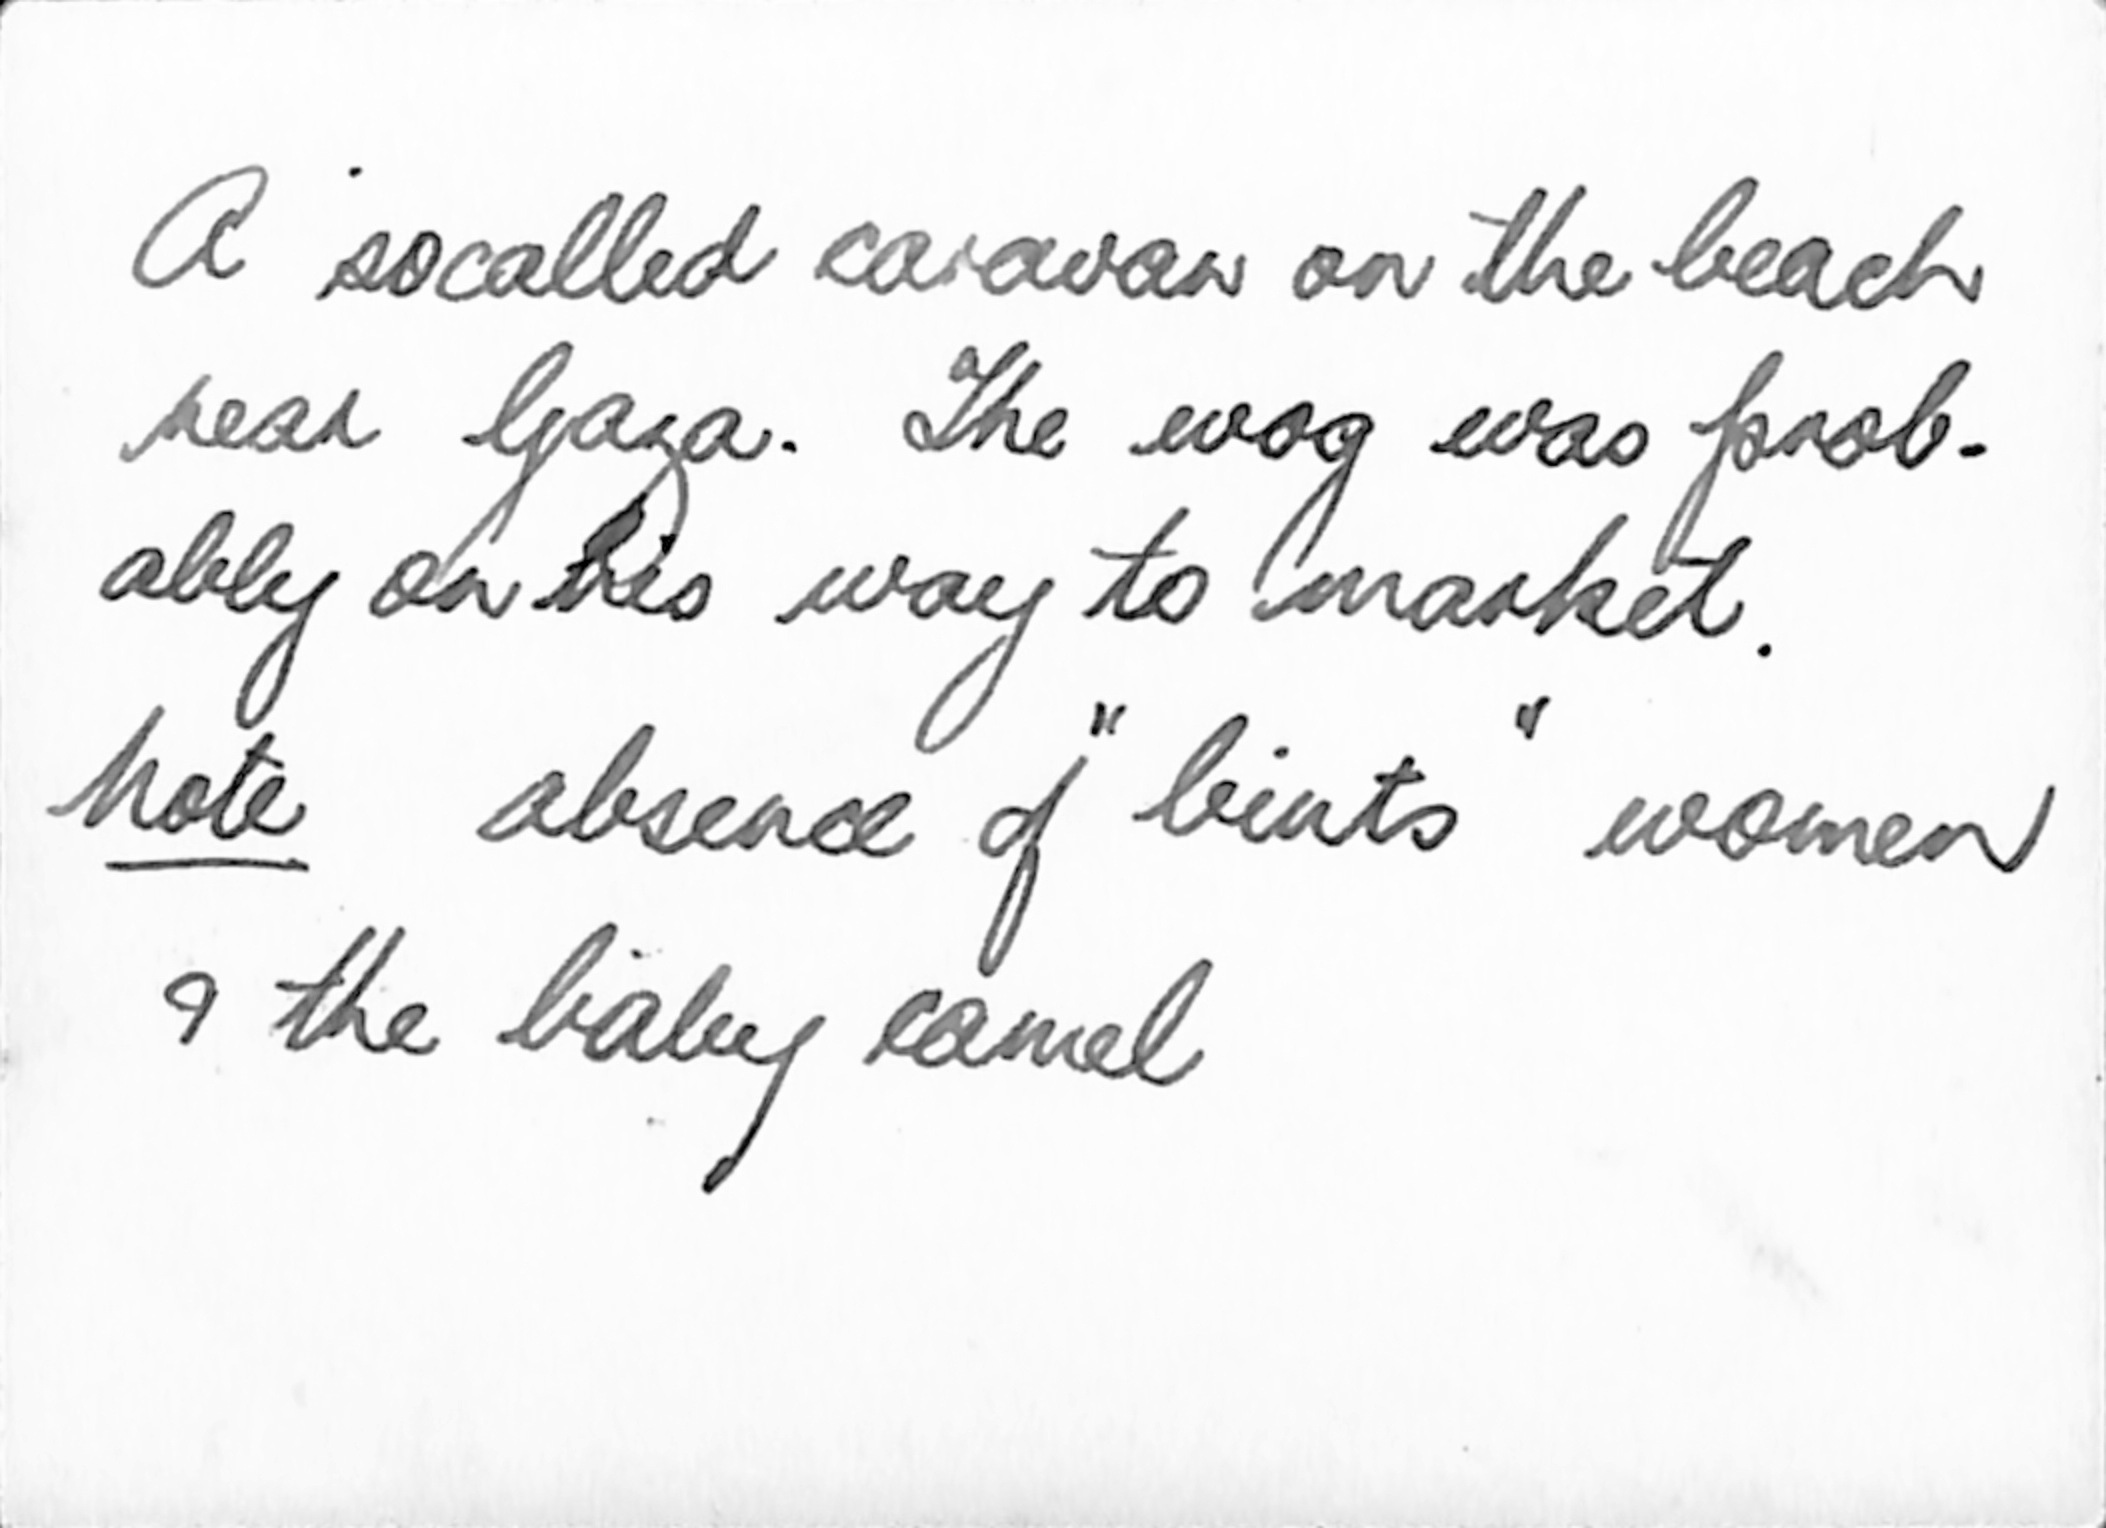 A socalled caravan on the beach
near Gaza. The wog was prob-
ably on his way to market.
Note absence of "bints" women
& the baby camel